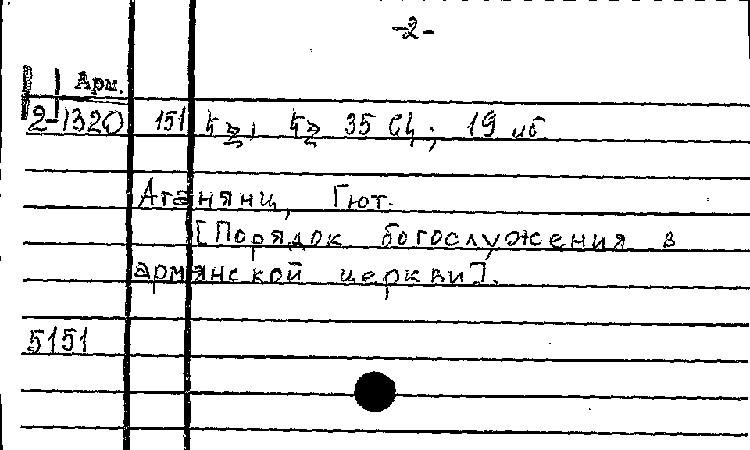 -2-
Арм.
2-1320 151 էջ, էջ 35 Сч; 19 иб
Аганянц, Гют.
[Порядок богослужения в
армянской церкви].
5151